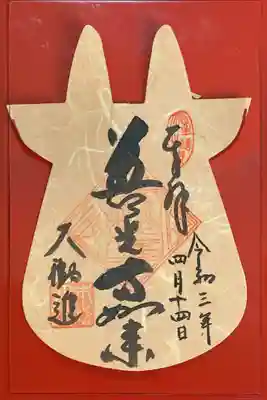 奉拝
令和三年
四月十四日
善光寺如来
大勧進